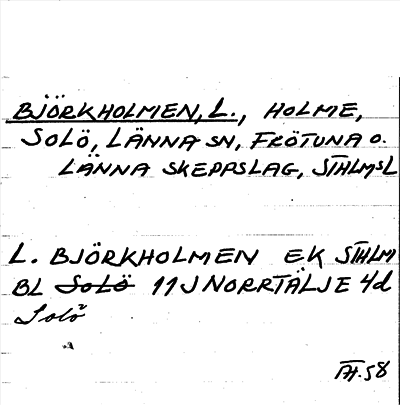 BJÖRKHOLMEN, L., HOLME,
SOLÖ, LÄNNA SN, FRÖTUNA O.
LÄNNA SKEPPSLAG, STHLMSL
L. BJÖRKHOLMEN EK STHLM
BL SOLÖ 11J NORRTÄLJE 4d
Solö
TH.58